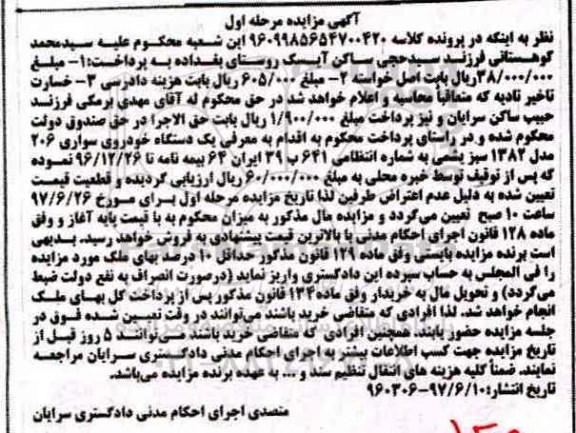 آگهی مزایده مرحله اول
نظر به اینکه در پرونده کلاسه ۹۶۰۹۹۸۵۶۵۴۷۰۰۴۲۰ این شعبه محکوم علیه سیدمحمد
کوهستانی فرزند سیدحجی ساکن آیسک روستای بغداده به پرداخت:۱- مبلغ
۳۸/۰۰۰/۰۰۰ریال بابت اصل خواسته ۲- مبلغ ۶۰۵/۰۰۰ ریال بابت هزینه دادرسی ۳- خسارت
تاخیر تادیه که متعاقباً محاسبه و اعلام خواهد شد در حق محکوم له آقای مهدی برمکی فرزند
حبیب ساکن سرایان و نیز پرداخت مبلغ ۱/۹۰۰/۰۰۰ ریال بابت حق الاجرا در حق صندوق دولت
محکوم شده و در راستای پرداخت محکوم به اقدام به معرفی یک دستگاه خودروی سواری ۲۰۶
مدل ۱۳۸۲ سبز یشمی به شماره انتظامی ۶۴۱ ب ۳۹ ایران ۶۴ بیمه نامه تا ۹۶/۱۲/۲۶ نموده
که پس از توقیف توسط خبره محلی به مبلغ ۶۰/۰۰۰/۰۰۰ ریال ارزیابی گردیده و قطعیت قیمت
تعیین شده به دلیل عدم اعتراض طرفین لذا تاریخ مزایده مرحله اول برای مورخ ۹۷/۶/۲۶
ساعت ۱۰ صبح تعیین می‌گردد و مزایده مال مذکور به میزان محکوم به با قیمت پایه آغاز و وفق
ماده ۱۲۸ قانون اجرای احکام مدنی با بالاترین قیمت پیشنهادی به فروش خواهد رسید. بدیهی
است برنده مزایده بایستی وفق ماده ۱۲۹ قانون مذکور حداقل ۱۰ درصد بهای ملک مورد مزایده
را فی المجلس به حساب سپرده این دادگستری واریز نماید (درصورت انصراف به نفع دولت ضبط
می‌گردد) و تحویل مال به خریدار وفق ماده۱۳۴ قانون مذکور پس از پرداخت کل بهای ملک
انجام خواهد شد. لذا افرادی که متقاضی خرید باشند می‌توانند در وقت تعیین شده فوق در
جلسه مزایده حضور یابند. همچنین افرادی که متقاضی خرید باشند می‌توانند ۵ روز قبل از
تاریخ مزایده جهت کسب اطلاعات بیشتر به اجرای احکام مدنی دادگستری سرایان مراجعه
نمایند. ضمناً کلیه هزینه های انتقال تنظیم سند و ... به عهده برنده مزایده می‌باشد.
تاریخ انتشار:۹۷/۶/۱۰-۹۶۰۳۰۶
متصدی اجرای احکام مدنی دادگستری سرایان